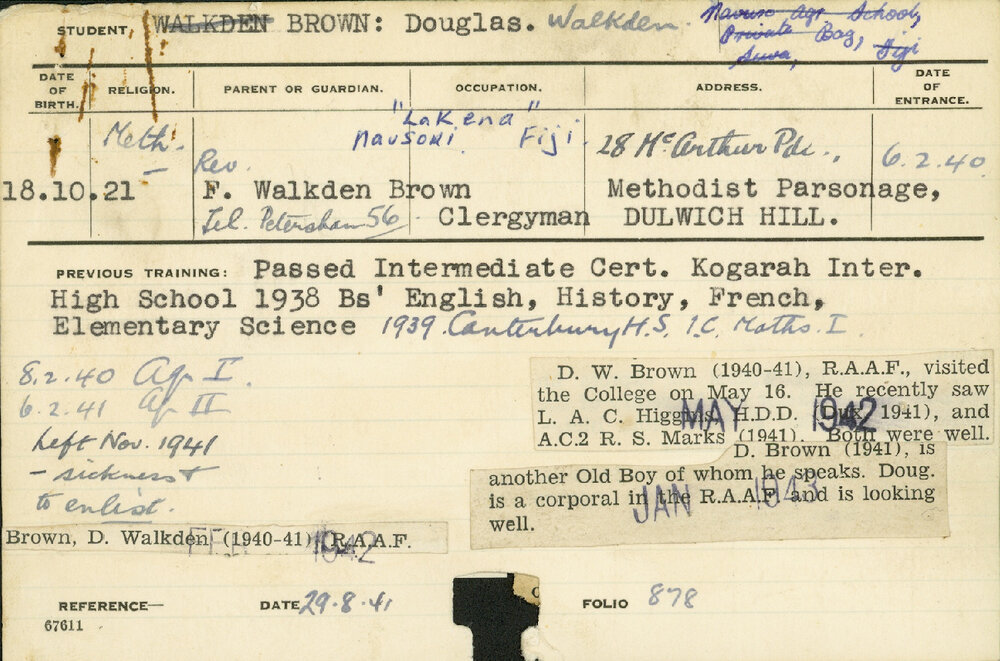 STUDENT, WALKDEN BROWN: Douglas. Walkden.
Navuso Agr School,
Private Bag,
Suva, Fiji
DATE OF BIRTH.
RELIGION.
PARENT OR GUARDIAN.
OCCUPATION.
ADDRESS.
DATE OF ENTRANCE.
Meth.
"Lakena"
Nausori Fiji.
28 McArthur Pde.,
6.2.40.
Rev.
18.10.21
F. Walkden Brown
Clergyman
Methodist Parsonage,
DULWICH HILL.
Tel. Petersham 56
PREVIOUS TRAINING: Passed Intermediate Cert. Kogarah Inter.
High School 1938 Bs' English, History, French,
Elementary Science 1939 Canterbury H.S. I.C. Maths. I
8.2.40 Ag I.
6.2.41 Ag II
Left Nov. 1941
- sickness &
to enlist.
D. W. Brown (1940-41), R.A.A.F., visited
the College on May 16. He recently saw
L. A. C. Higgins, H.D.D. (Dux, 1941), and
A.C.2 R. S. Marks (1941). Both were well.
MAY 1942
D. Brown (1941), is
another Old Boy of whom he speaks. Doug.
is a corporal in the R.A.A.F. and is looking
well.
JAN 1943
Brown, D. Walkden (1940-41) R.A.A.F.
FEB 1942
REFERENCE—
67611
DATE 29.8.41
FOLIO 878